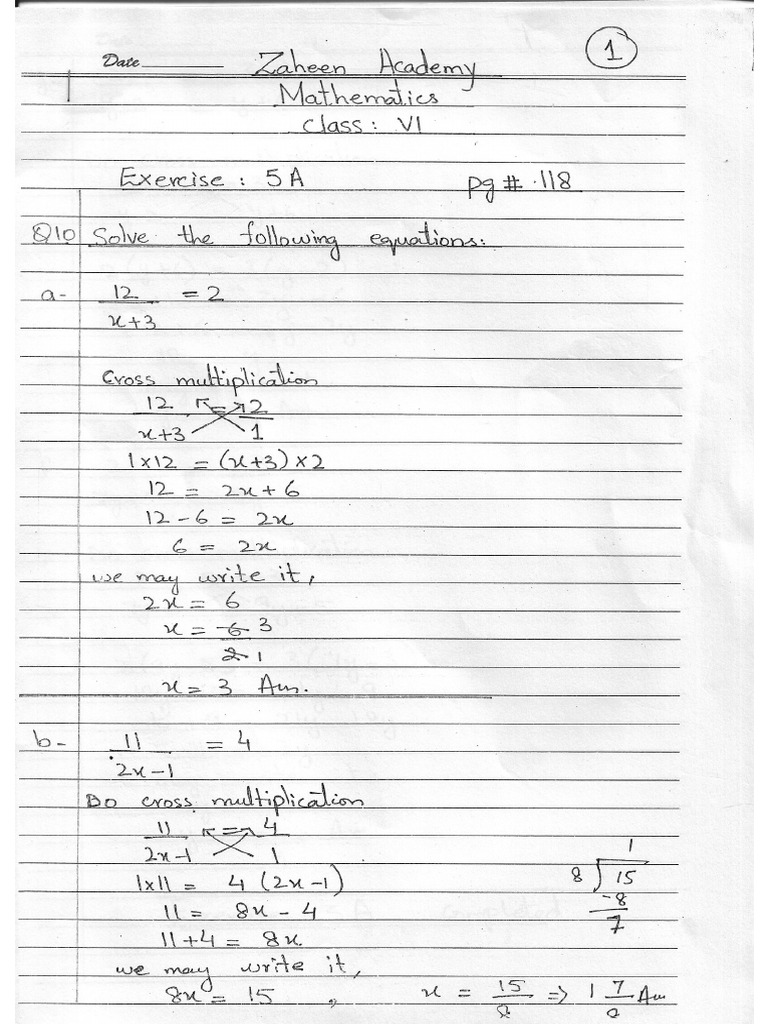 1
Date Zaheen Academy
Mathematics
class: VI
Exercise: 5A pg#.118
Q10 Solve the following equations:
a- 12/(x+3) = 2
Cross multiplication
12/(x+3) = 2/1
1x12 = (x+3) x2
12 = 2x+6
12-6 = 2x
6 = 2x
we may write it,
2x = 6
x = 6 3
2 1
x = 3 Ans.
b- 11/(2x-1) = 4
Do cross multiplication
11/(2x-1) = 4/1
1x11 = 4 (2x-1)
11 = 8x - 4
11+4 = 8x
we may write it,
8x = 15 , x = 15/8 => 1 7/8 Ans
1
8 ) 15
-8
7